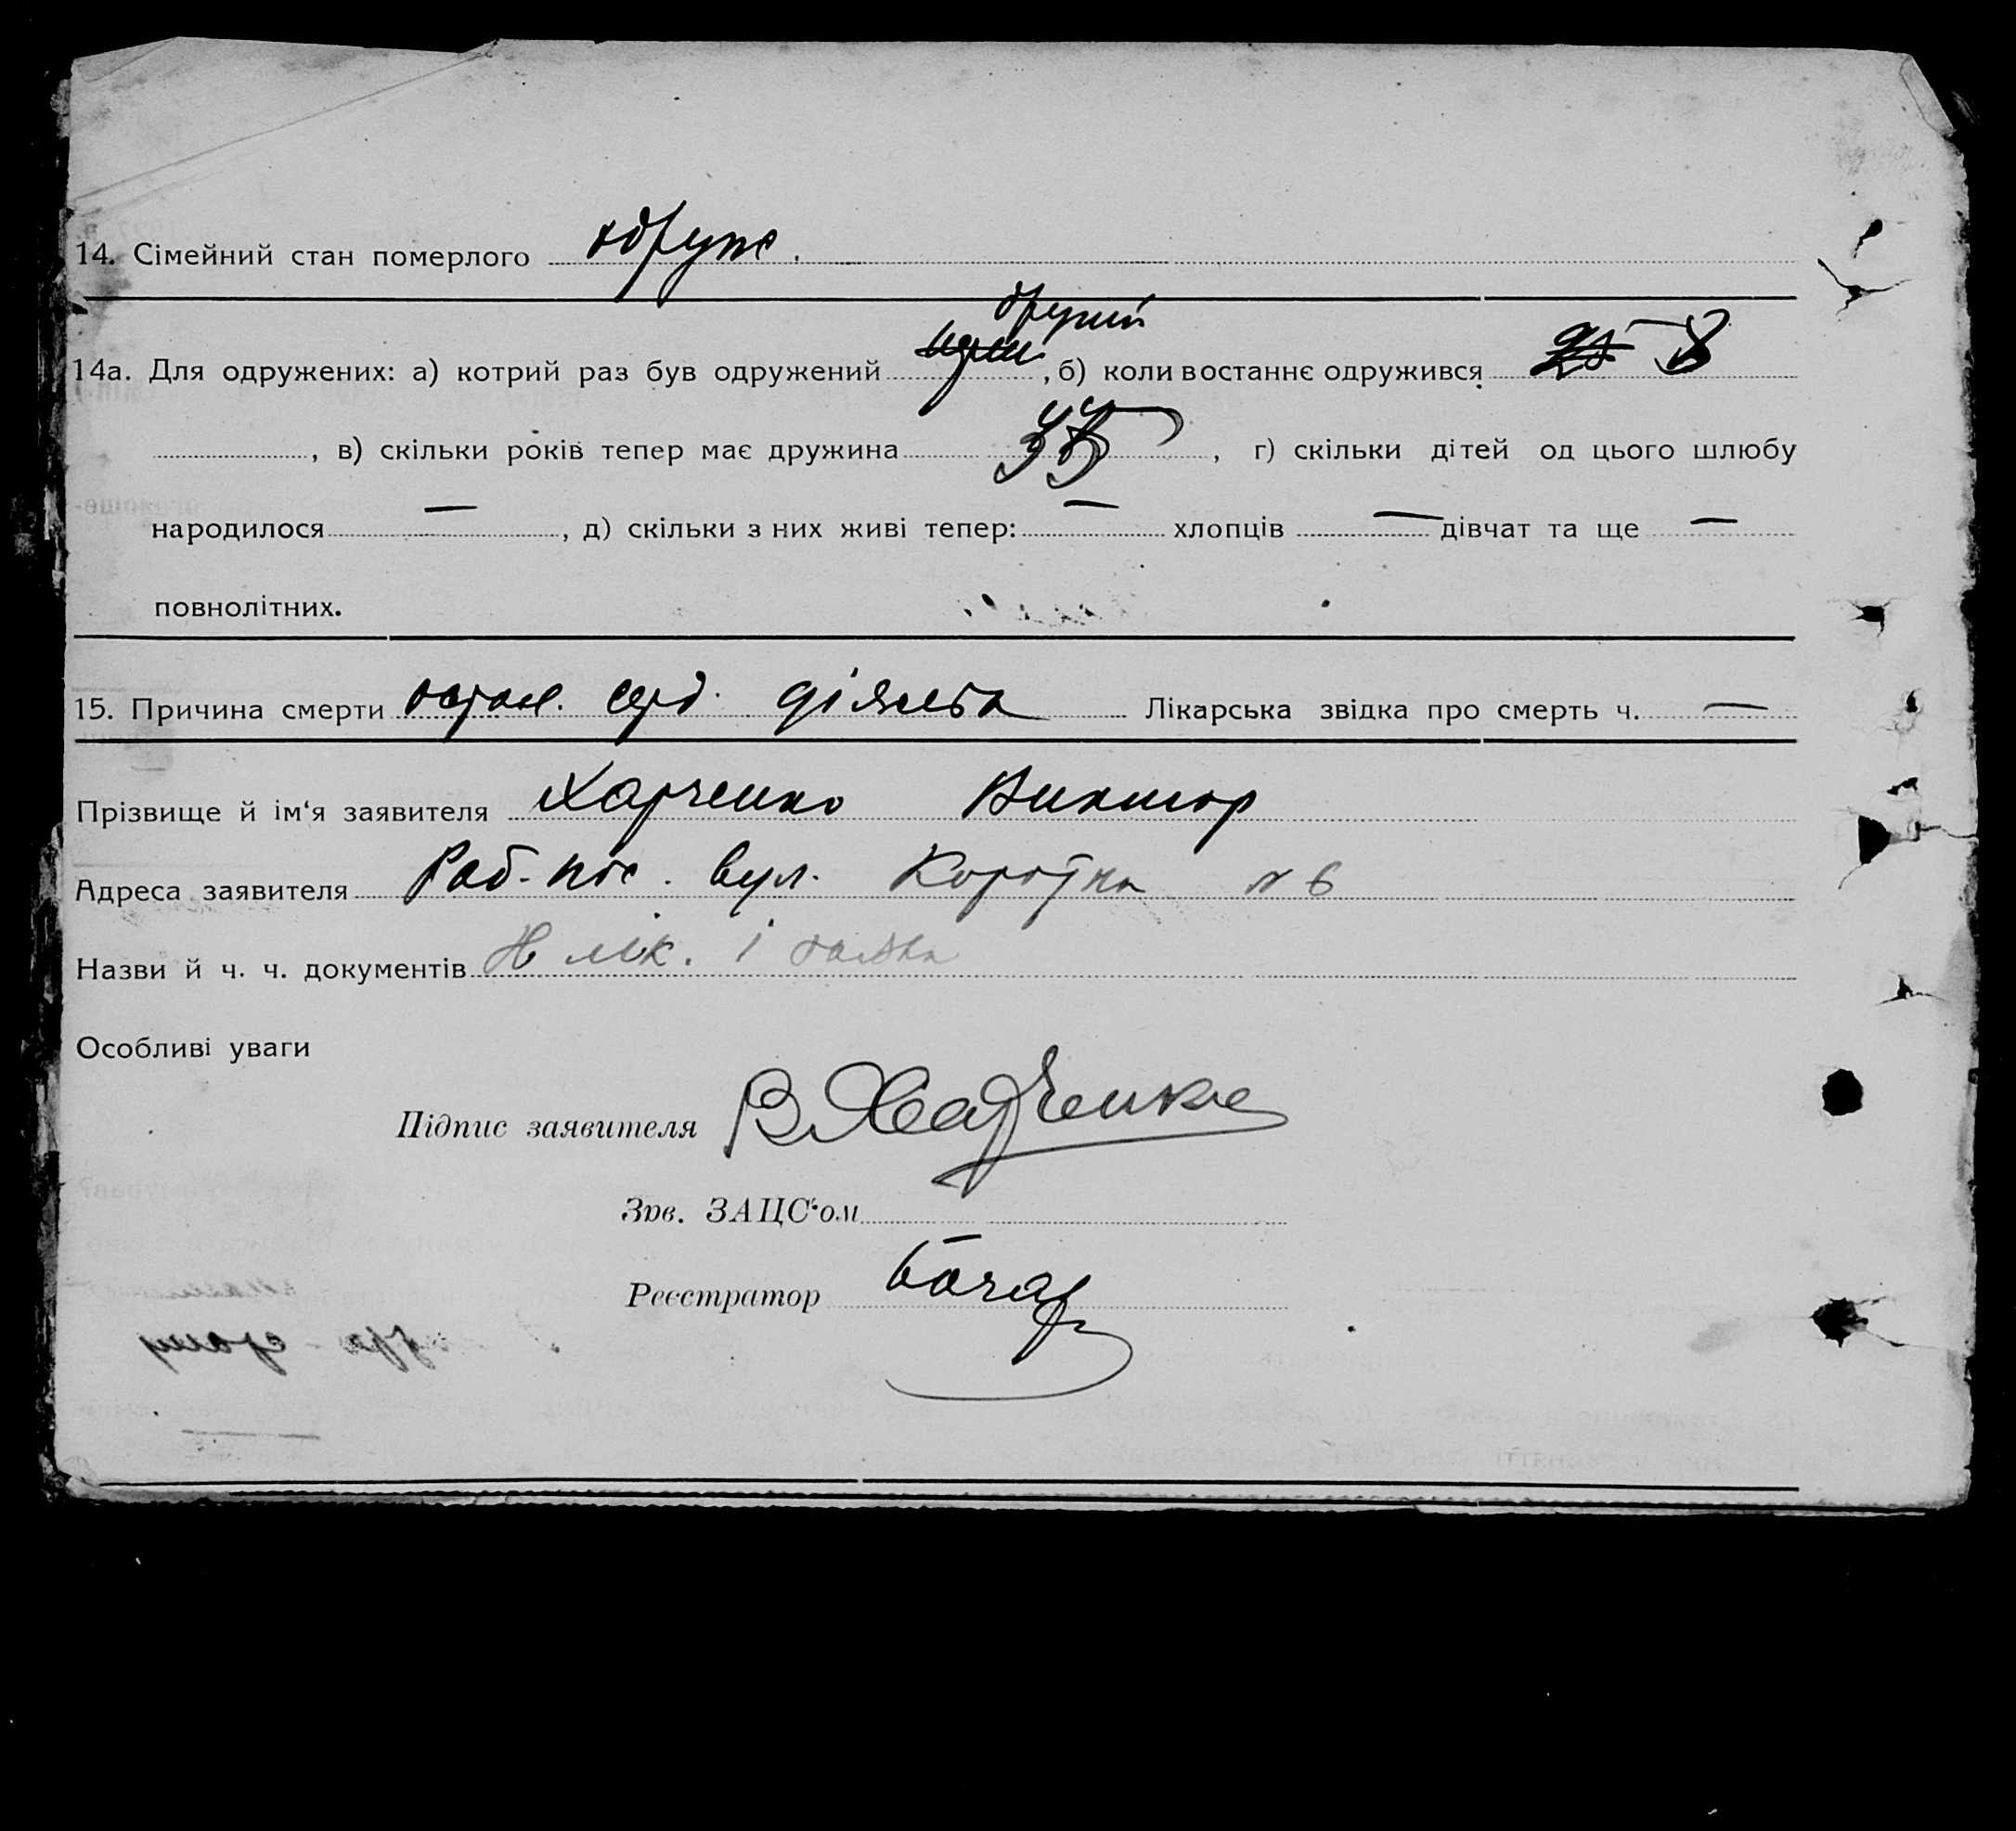 14. Сімейний стан померлого одруж.
другий
14а. Для одружених: а) котрий раз був одружений, б) коли востаннє одружився
, в) скільки років тепер має дружина , г) скільки дітей од цього шлюбу
народилося — , д) скільки з них живі тепер: — хлопців — дівчат та ще —
повнолітних.
15. Причина смерти серд. Лікарська звідка про смерть ч. —
Прізвище й ім'я заявителя Харченко Виктор
Адреса заявителя Раб. пос. вул. Коротка № 6
Назви й ч. ч. документів
Особливі уваги
Підпис заявителя В Харченко
Зав. ЗАЦС'ом
Реєстратор